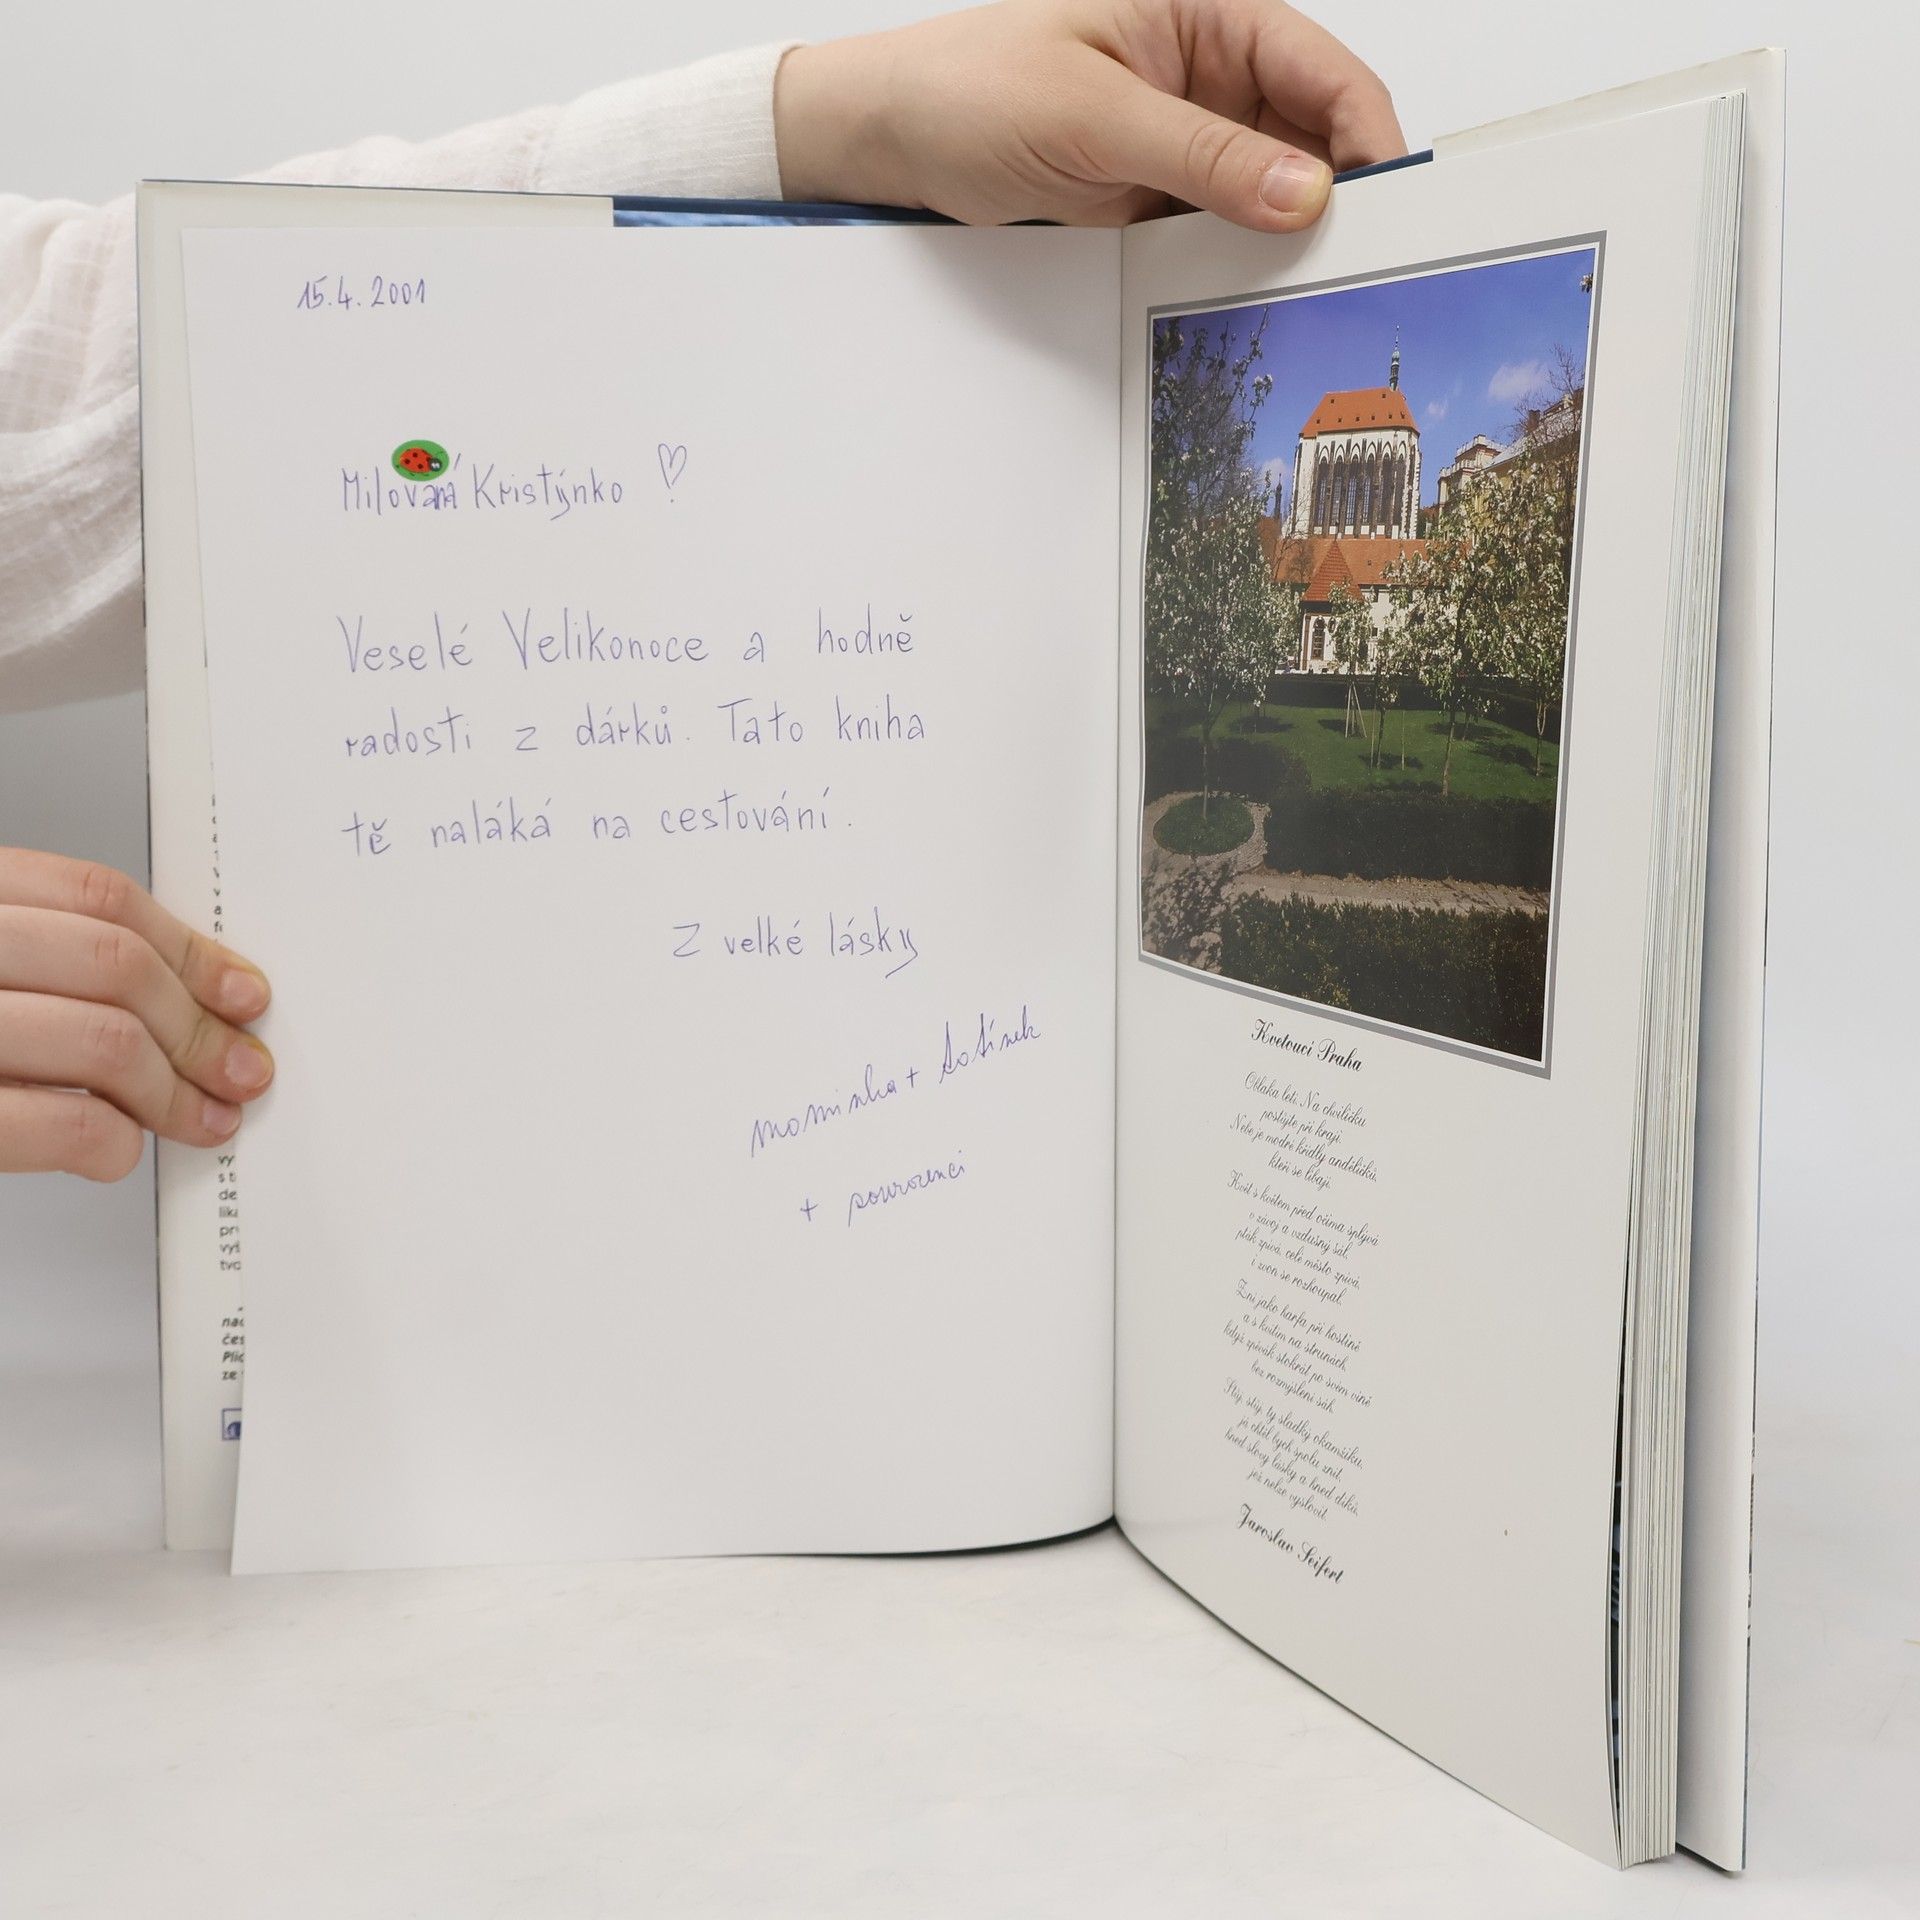 15.4.2001
Milovaná Kristýnko
Veselé Velikonoce a hodně
radosti z dárků. Tato kniha
tě naláká na cestování.
Z velké lásky
maminka + tatínek
+ sourozenci
vy
s t
de
lik
pr
vyš
tvo
nad
čes
ze
Kvetoucí Praha
Oblaka letí. Na chviličku
postůjte při kraji.
Nebe je modré křídly andělíčků,
kteří se líbají.
Květ s květem před očima splývá
v závoj a vzdušný šál,
pták zpívá, celé město zpívá,
i zvon se rozhoupal.
Zní jako harfa při hostině
a s kvítím na strunách,
když zpěvák stokrát po svém víně
bez rozmýšlení sáh.
Stůj, stůj, ty sladký okamžiku,
já chtěl bych spolu znít,
hned slovy lásky a hned díků,
jež nelze vyslovit.
Jaroslav Seifert